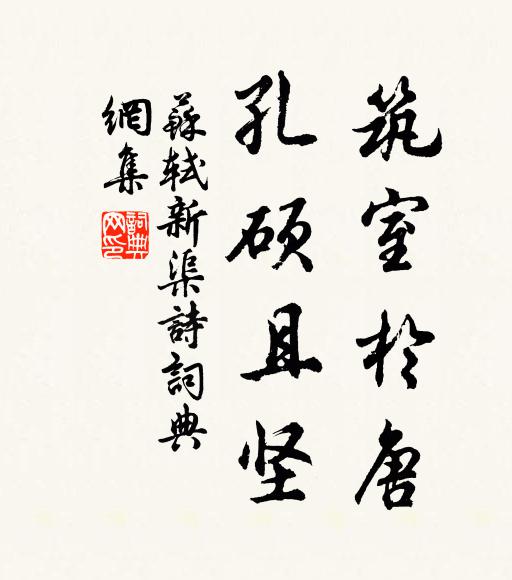 筑室於唐
孔硕且坚
蘇軾新渠詩詞典
網集
詞典
网印